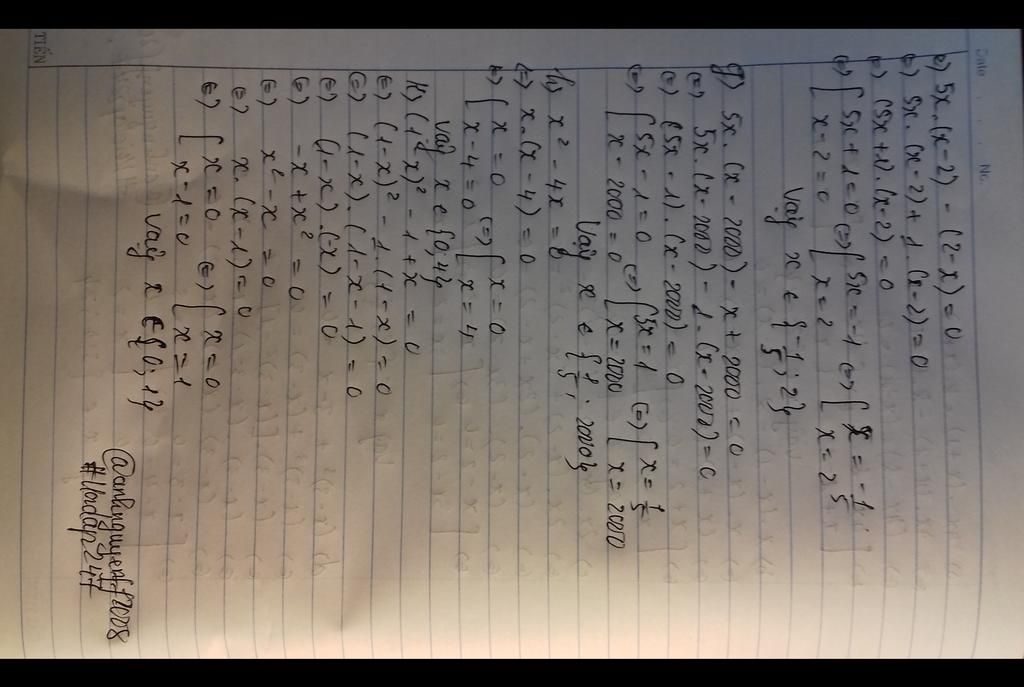 Date No.
e) 5x.(x-2) - (2-x) = 0
(=) 5x.(x-2) + 1.(x-2) = 0
(=) (5x+1).(x-2) = 0
(=) [ 5x+1=0 (=) [ 5x=-1 (=) [ x = -1/5 ;
x-2=0 x=2 x=2
Vậy x ∈ {-1/5; 2}
g) 5x.(x-2000) - x + 2000 = 0
(=) 5x.(x-2000) - 1.(x-2000) = 0
(=) (5x-1).(x-2000) = 0
(=) [ 5x-1=0 (=) [ 5x=1 (=) [ x=1/5
x-2000=0 x=2000 x=2000
Vậy x ∈ {1/5; 2000}
h) x² - 4x = 0
(=) x.(x-4) = 0
(=) [ x=0 (=) [ x=0
x-4=0 x=4
Vậy x ∈ {0;4}
k) (1-x)² - 1 + x = 0
(=) (1-x)² - 1.(1-x) = 0
(=) (1-x).(1-x-1) = 0
(=) (1-x).(-x) = 0
(=) -x + x² = 0
(=) x² - x = 0
(=) x.(x-1) = 0
(=) [ x=0 (=) [ x=0
x-1=0 x=1
Vậy x ∈ {0;1}
#Hoidap247
TIẾN